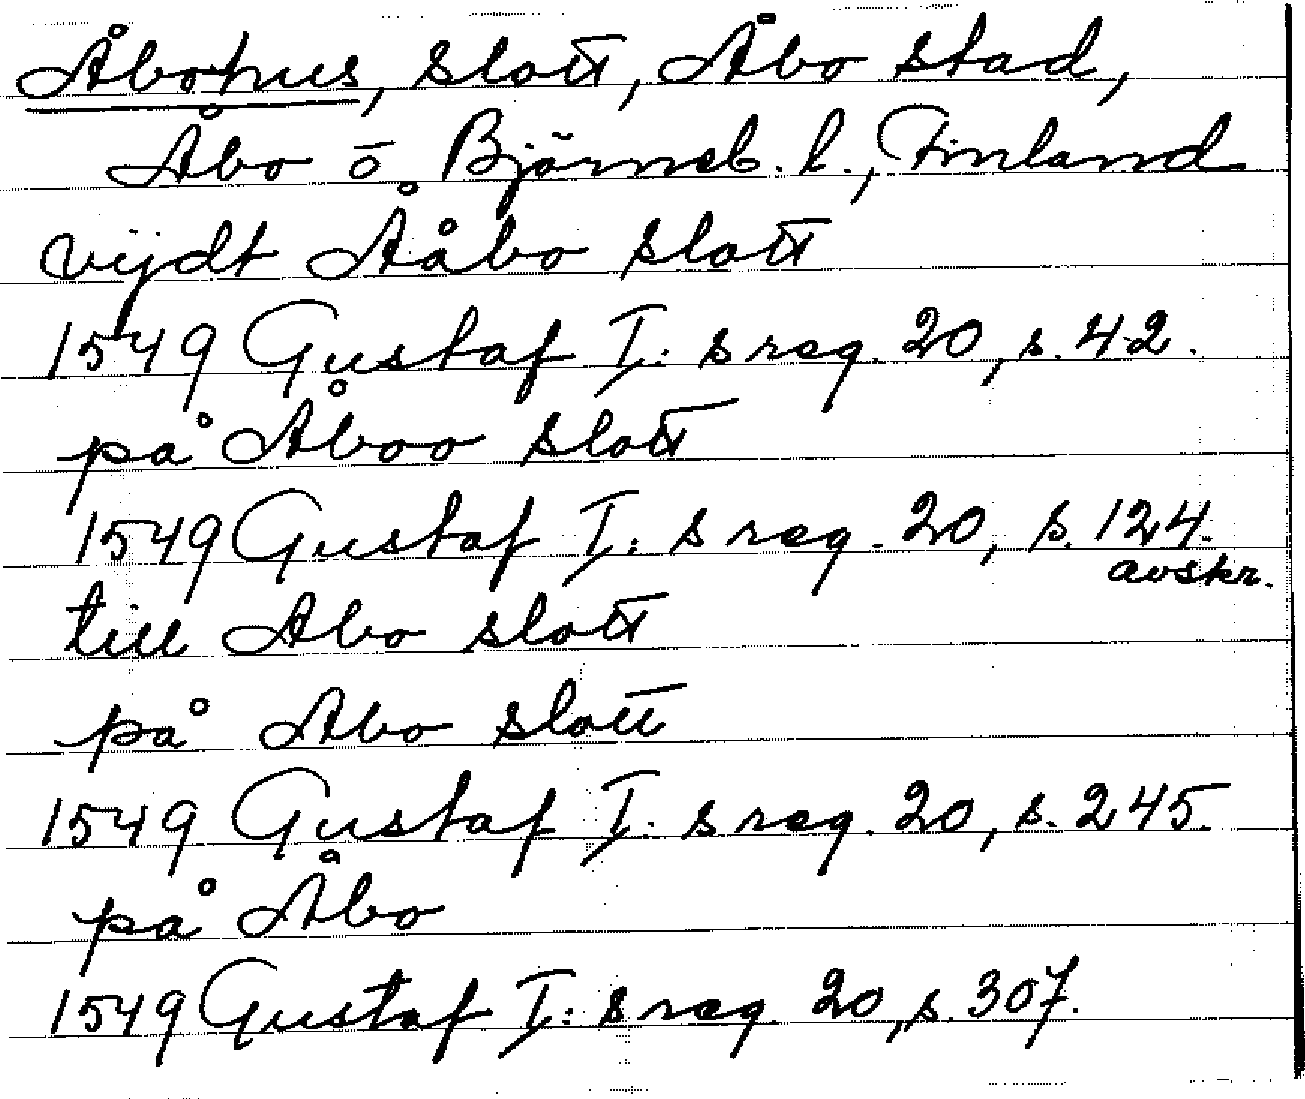 Åbohus, slott, Åbo stad,
Åbo o Björneb. l., Finland
vijdt Ååbo slott
1549 Gustaf I: s reg. 20, s. 42.
på Åboo slott
1549 Gustaf I: s reg. 20, s. 124.
avskr.
till Abo slott
på Abo slott
1549 Gustaf I: s reg. 20, s. 245.
på Åbo
1549 Gustaf I: s reg. 20, s. 307.